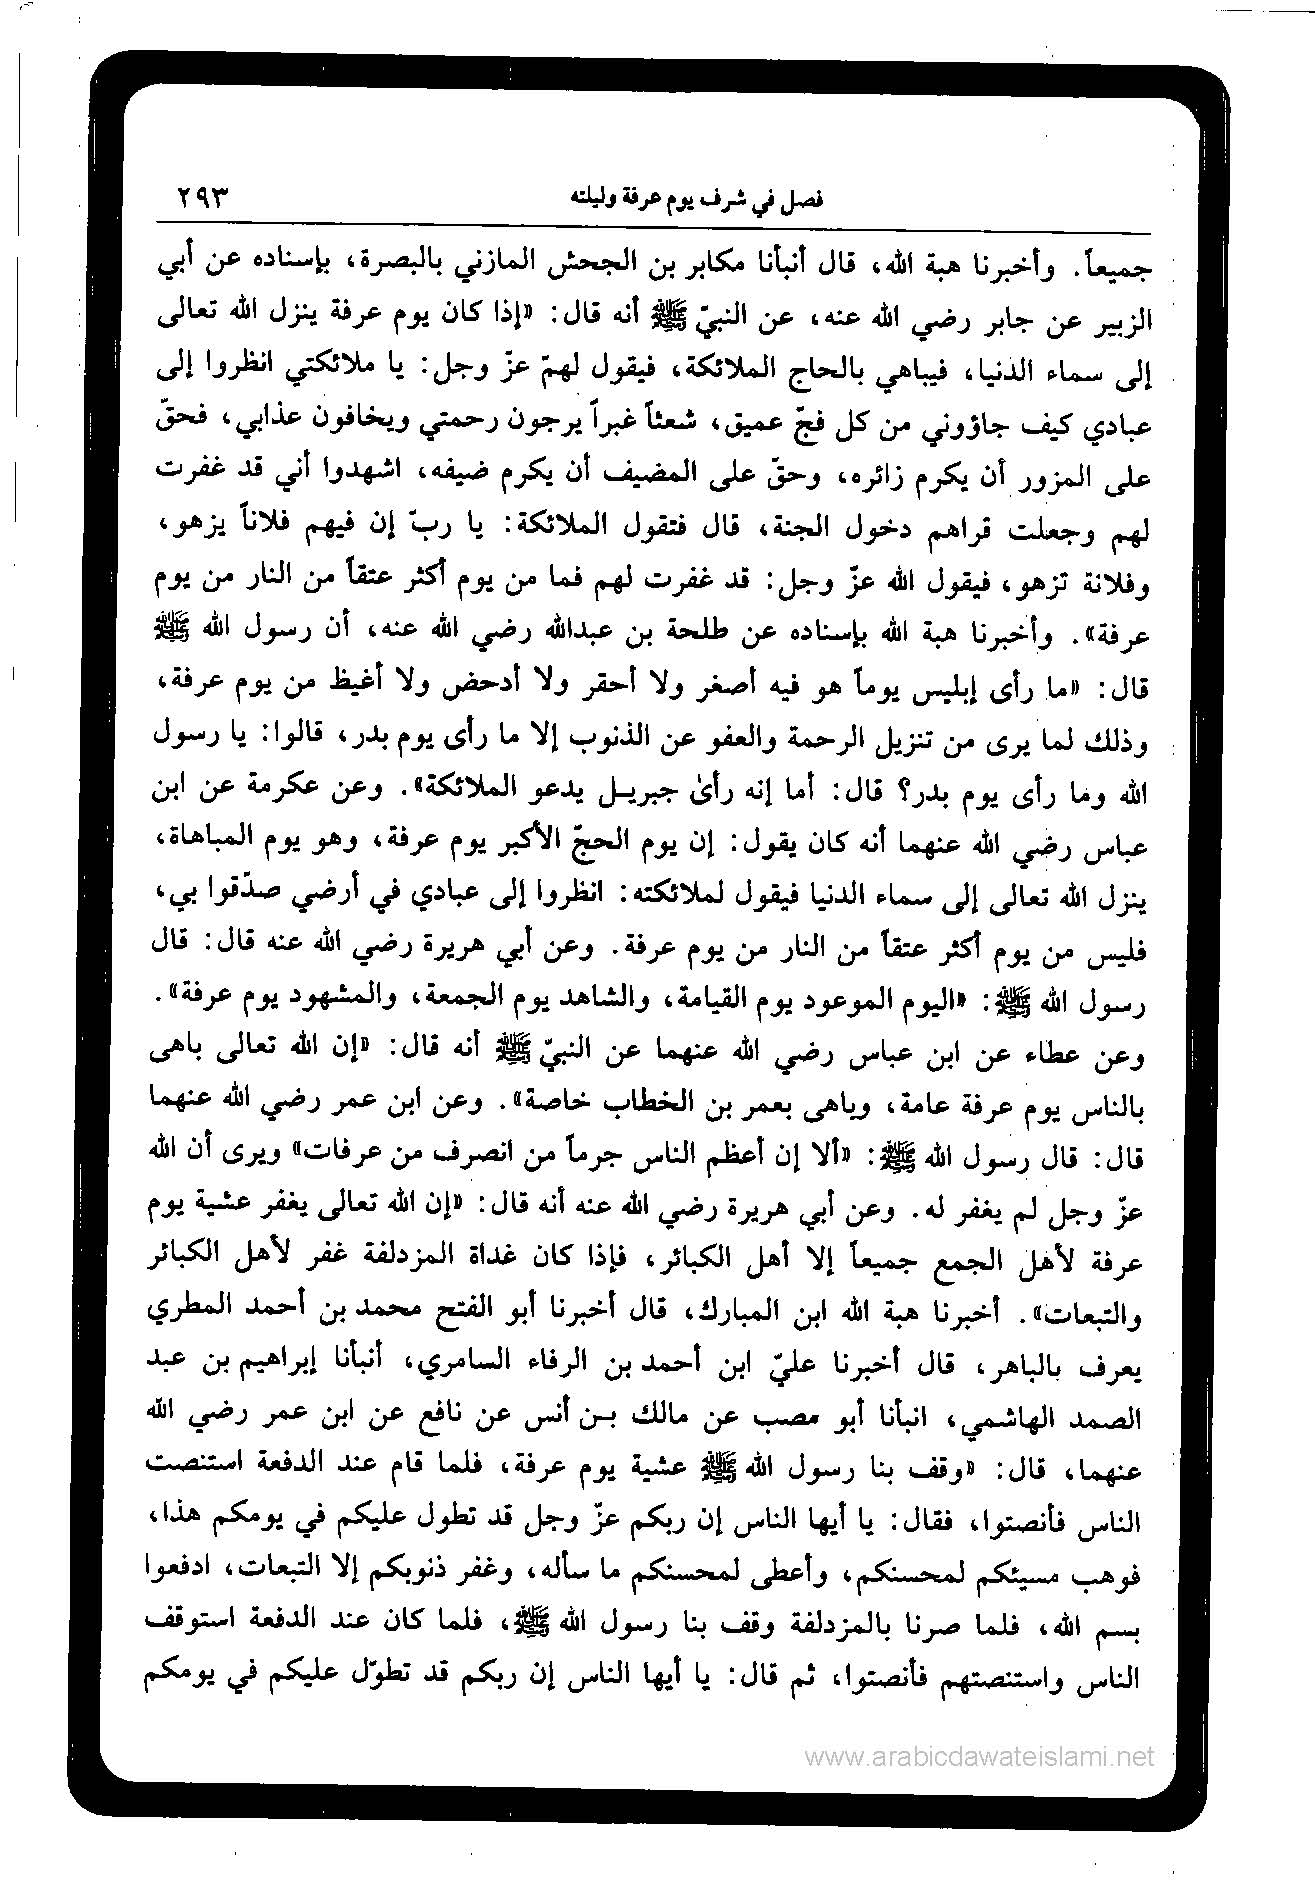 فصل في شرف يوم عرفة وليلته ٢٩٣
جميعاً. وأخبرنا هبة الله، قال أنبأنا مكابر بن الجحش المازني بالبصرة، بإسناده عن أبي
الزبير عن جابر رضي الله عنه، عن النبيّ ﷺ أنه قال: «إذا كان يوم عرفة ينزل الله تعالى
إلى سماء الدنيا، فيباهي بالحاج الملائكة، فيقول لهمّ عزّ وجل: يا ملائكتي انظروا إلى
عبادي كيف جاؤوني من كل فجّ عميق، شعثاً غبراً يرجون رحمتي ويخافون عذابي، فحقّ
على المزور أن يكرم زائره، وحقّ على المضيف أن يكرم ضيفه، اشهدوا أني قد غفرت
لهم وجعلت قراهم دخول الجنة، قال فتقول الملائكة: يا ربّ إن فيهم فلاناً يزهو،
وفلانة تزهو، فيقول الله عزّ وجل: قد غفرت لهم فما من يوم أكثر عتقاً من النار من يوم
عرفة». وأخبرنا هبة الله بإسناده عن طلحة بن عبدالله رضي الله عنه، أن رسول الله ﷺ
قال: «ما رأى إبليس يوماً هو فيه أصغر ولا أحقر ولا أدحض ولا أغيظ من يوم عرفة،
وذلك لما يرى من تنزيل الرحمة والعفو عن الذنوب إلا ما رأى يوم بدر، قالوا: يا رسول
الله وما رأى يوم بدر؟ قال: أما إنه رأىٰ جبريل يدعو الملائكة». وعن عكرمة عن ابن
عباس رضي الله عنهما أنه كان يقول: إن يوم الحجّ الأكبر يوم عرفة، وهو يوم المباهاة،
ينزل الله تعالى إلى سماء الدنيا فيقول لملائكته: انظروا إلى عبادي في أرضي صدّقوا بي،
فليس من يوم أكثر عتقاً من النار من يوم عرفة. وعن أبي هريرة رضي الله عنه قال: قال
رسول الله ﷺ: «اليوم الموعود يوم القيامة، والشاهد يوم الجمعة، والمشهود يوم عرفة».
وعن عطاء عن ابن عباس رضي الله عنهما عن النبيّ ﷺ أنه قال: «إن الله تعالى باهى
بالناس يوم عرفة عامة، وباهى بعمر بن الخطاب خاصة». وعن ابن عمر رضي الله عنهما
قال: قال رسول الله ﷺ: «ألا إن أعظم الناس جرماً من انصرف من عرفات» ويرى أن الله
عزّ وجل لم يغفر له. وعن أبي هريرة رضي الله عنه أنه قال: «إن الله تعالى يغفر عشية يوم
عرفة لأهل الجمع جميعاً إلا أهل الكبائر، فإذا كان غداة المزدلفة غفر لأهل الكبائر
والتبعات». أخبرنا هبة الله ابن المبارك، قال أخبرنا أبو الفتح محمد بن أحمد المطري
يعرف بالباهر، قال أخبرنا عليّ ابن أحمد بن الرفاء السامري، أنبأنا إبراهيم بن عبد
الصمد الهاشمي، انبأنا أبو مصب عن مالك بن أنس عن نافع عن ابن عمر رضي الله
عنهما، قال: «وقف بنا رسول الله ﷺ عشية يوم عرفة، فلما قام عند الدفعة استنصت
الناس فأنصتوا، فقال: يا أيها الناس إن ربكم عزّ وجل قد تطول عليكم في يومكم هذا،
فوهب مسيئكم لمحسنكم، وأعطى لمحسنكم ما سأله، وغفر ذنوبكم إلا التبعات، ادفعوا
بسم الله، فلما صرنا بالمزدلفة وقف بنا رسول الله ﷺ، فلما كان عند الدفعة استوقف
الناس واستنصتهم فأنصتوا، ثم قال: يا أيها الناس إن ربكم قد تطوّل عليكم في يومكم
www.arabicdawateislami.net